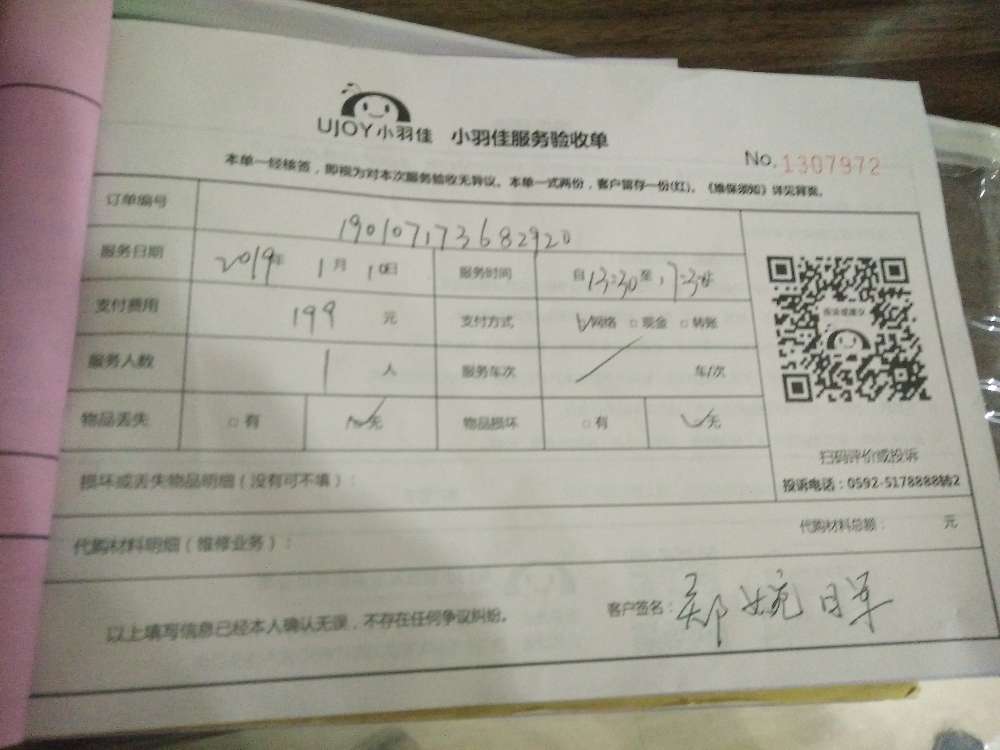 UJOY小羽佳 小羽佳服务验收单
No. 1307972
本单一经核签，即视为对本次服务验收无异议。本单一式两份，客户留存一份(红)。《维保须知》详见背条。
订单编号 190107173682920
服务日期 2019年 1月 10日 服务时间 自13:30至17:30
支付费用 199 元 支付方式 ☑网络 □现金 □转账
服务人数 1 人 服务车次 / 车/次
物品丢失 □有 ☑无 物品损坏 □有 ☑无
扫码评价或投诉
投诉电话：0592-5178888转2
损坏或丢失物品明细（没有可不填）：
代购材料明细（维修业务）： 代购材料总额： 元
以上填写信息已经本人确认无误，不存在任何争议纠纷。 客户签名：郑婉